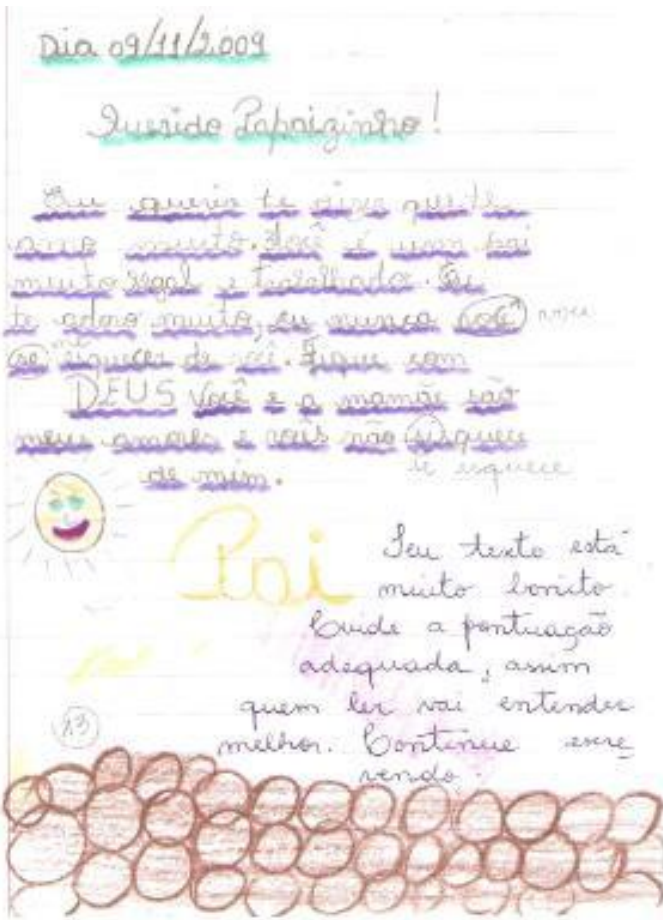 Dia 09/11/2.009
Querido Papaizinho!
Eu queria te dizer que te
amo muito. Você é um pai
muito legal e trabalhado. Eu
te adoro muito, eu nunca você
se esquecer de você. Fique com
DEUS Você e a mamãe são
meus amores e vocês não
de mim.
se esquece
Pai
Seu texto está
muito bonito
Cuide a pontuação
adequada, assim
quem ler vai entender
melhor. Continue escre
vendo.
13